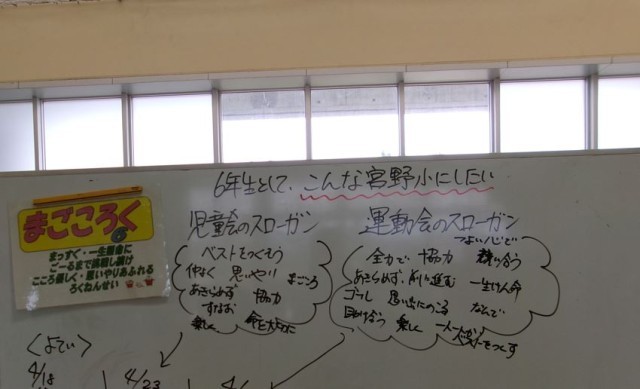 6年生として、こんな宮野小にしたい
まごころく
6
まっすぐ・一生懸命に
ごーるまで挑戦し続け
こころ優しく・思いやりあふれる
ろくねんせい
児童会のスローガン
ベストをつくそう
仲よく 思いやり まごころ
あきらめず 協力
すなお
楽しく 命を大切に
運動会のスローガン
つよい心で
全力で 協力 競い合う
あきらめず、前に進む 一生けん命
ゴール 思い出にのこる
助け合う 楽しく 一人一人が
ベストをつくす
<よてい>
4/18
4/23
4/